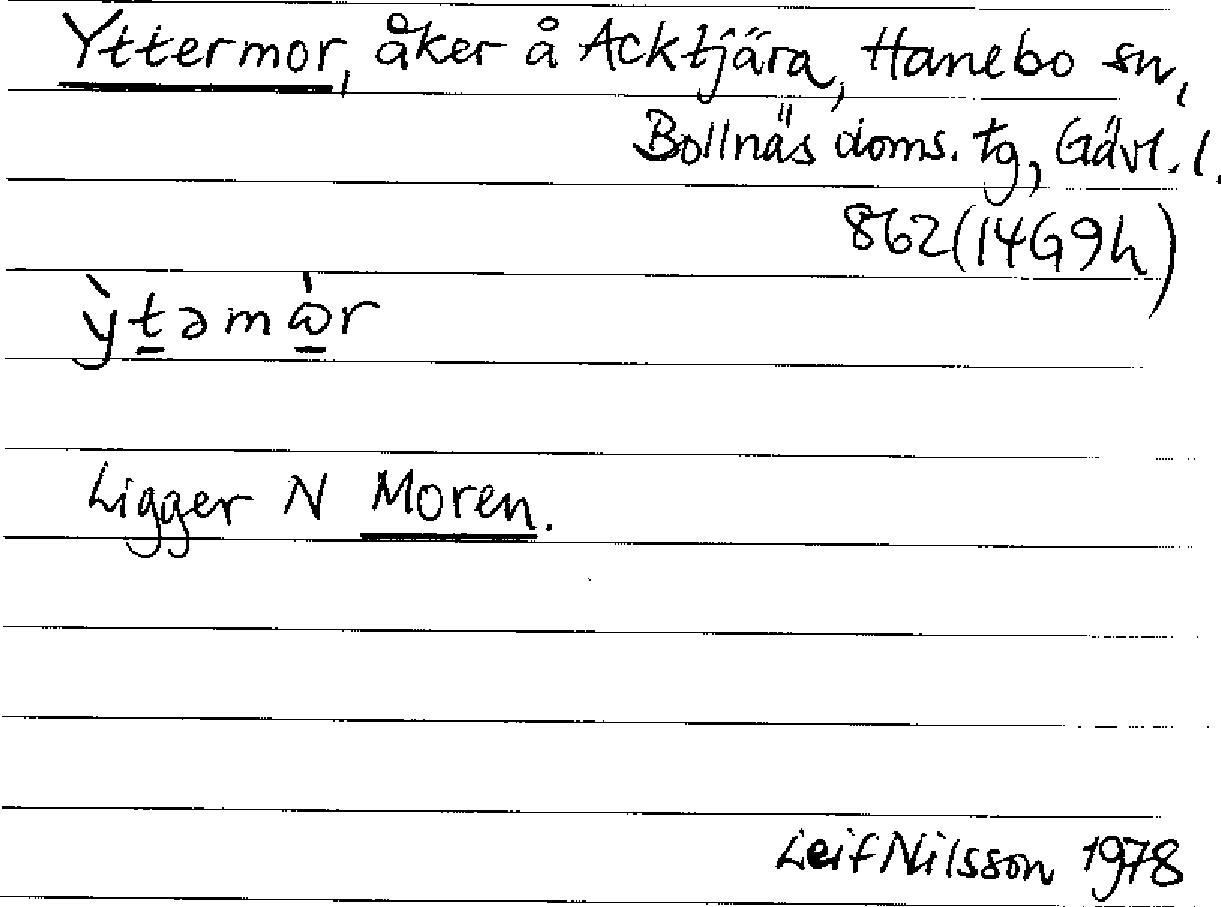 Yttermor, åker å Acktjära, Hanebo sn,
Bollnäs doms. tg, Gävl. l.
862 (14G9h)
ỳt̲əmὼ̲r
Ligger N Moren.
Leif Nilsson 1978